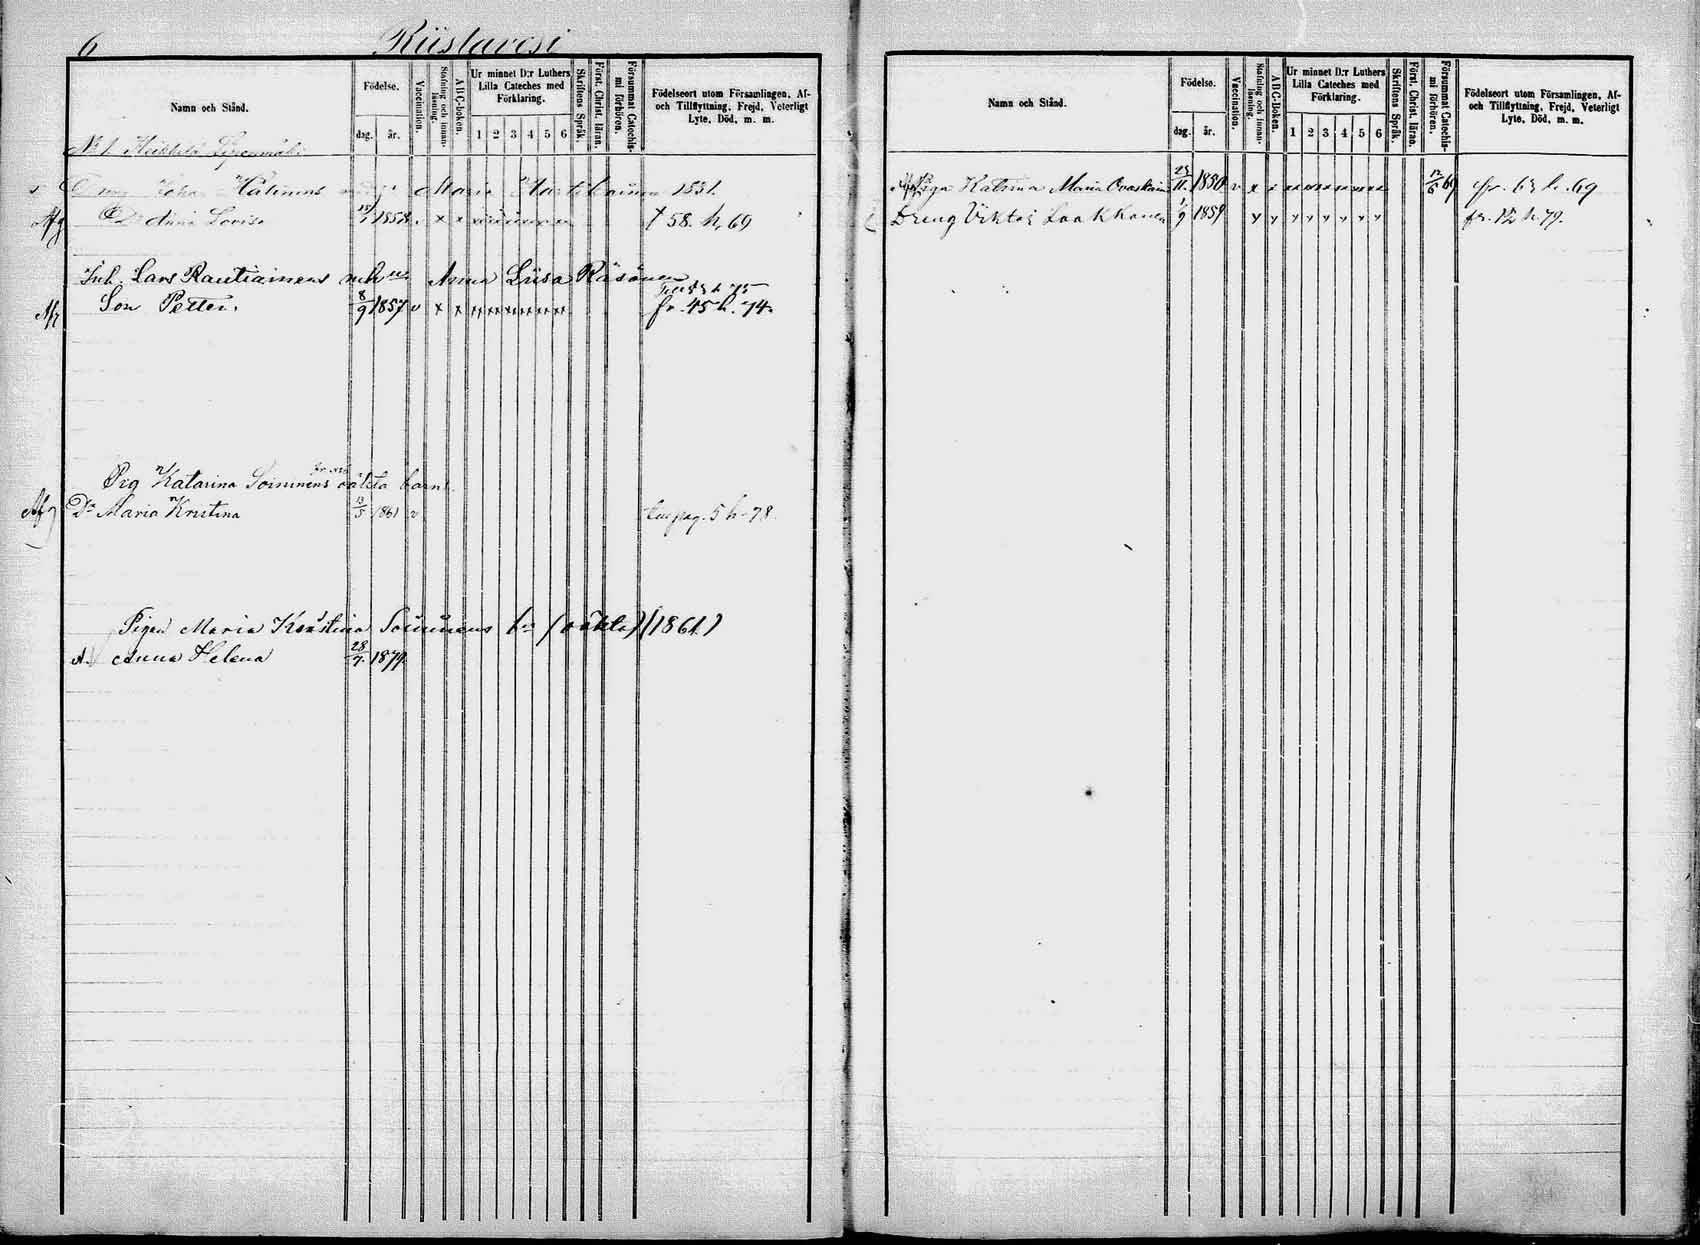 6 Riistavesi
Namn och Stånd.
Födelse.
dag. år.
Vaccination.
Stafning och innan-läsning.
ABC-boken.
Ur minnet D:r Luthers Lilla Cateches med Förklaring.
1 2 3 4 5 6
Skriftens Språk.
Först. Christ. läran.
Försummat Catechis-mi förhören.
Födelseort utom Församlingen, Af- och Tillflyttning, Frejd, Veterligt Lyte, Död, m. m.
N:o 1.
Maria 1831.
Afg Anna Lovisa 1858 v x x † 58. h. 69
Inh. Lars Rautiainens Anna Liisa Räsänen
Son Petter. 8/9 1857 v x x x x x x x x fr. 45 h. 74.
Pig Katarina Soininens oäkta barn.
Afg Dr Maria Kristina 13/5 1861 v 5 h 78.
Pigan Maria Kristina Soininens bn (oäkta) (1861.)
A. Anna Helena 28/7. 1879.
Namn och Stånd.
Födelse.
dag. år.
Vaccination.
Stafning och innan-läsning.
ABC-boken.
Ur minnet D:r Luthers Lilla Cateches med Förklaring.
1 2 3 4 5 6
Skriftens Språk.
Först. Christ. läran.
Försummat Catechis-mi förhören.
Födelseort utom Församlingen, Af- och Tillflyttning, Frejd, Veterligt Lyte, Död, m. m.
Piga Katrina Maria Ovaskain 25/11. 1850 v x x x x x x x x 12/6 69 fr. 63 h. 69
Dreng Viktor Laakkonen 1/9 1859 x x x x x x x x fr. 12 h. 79.